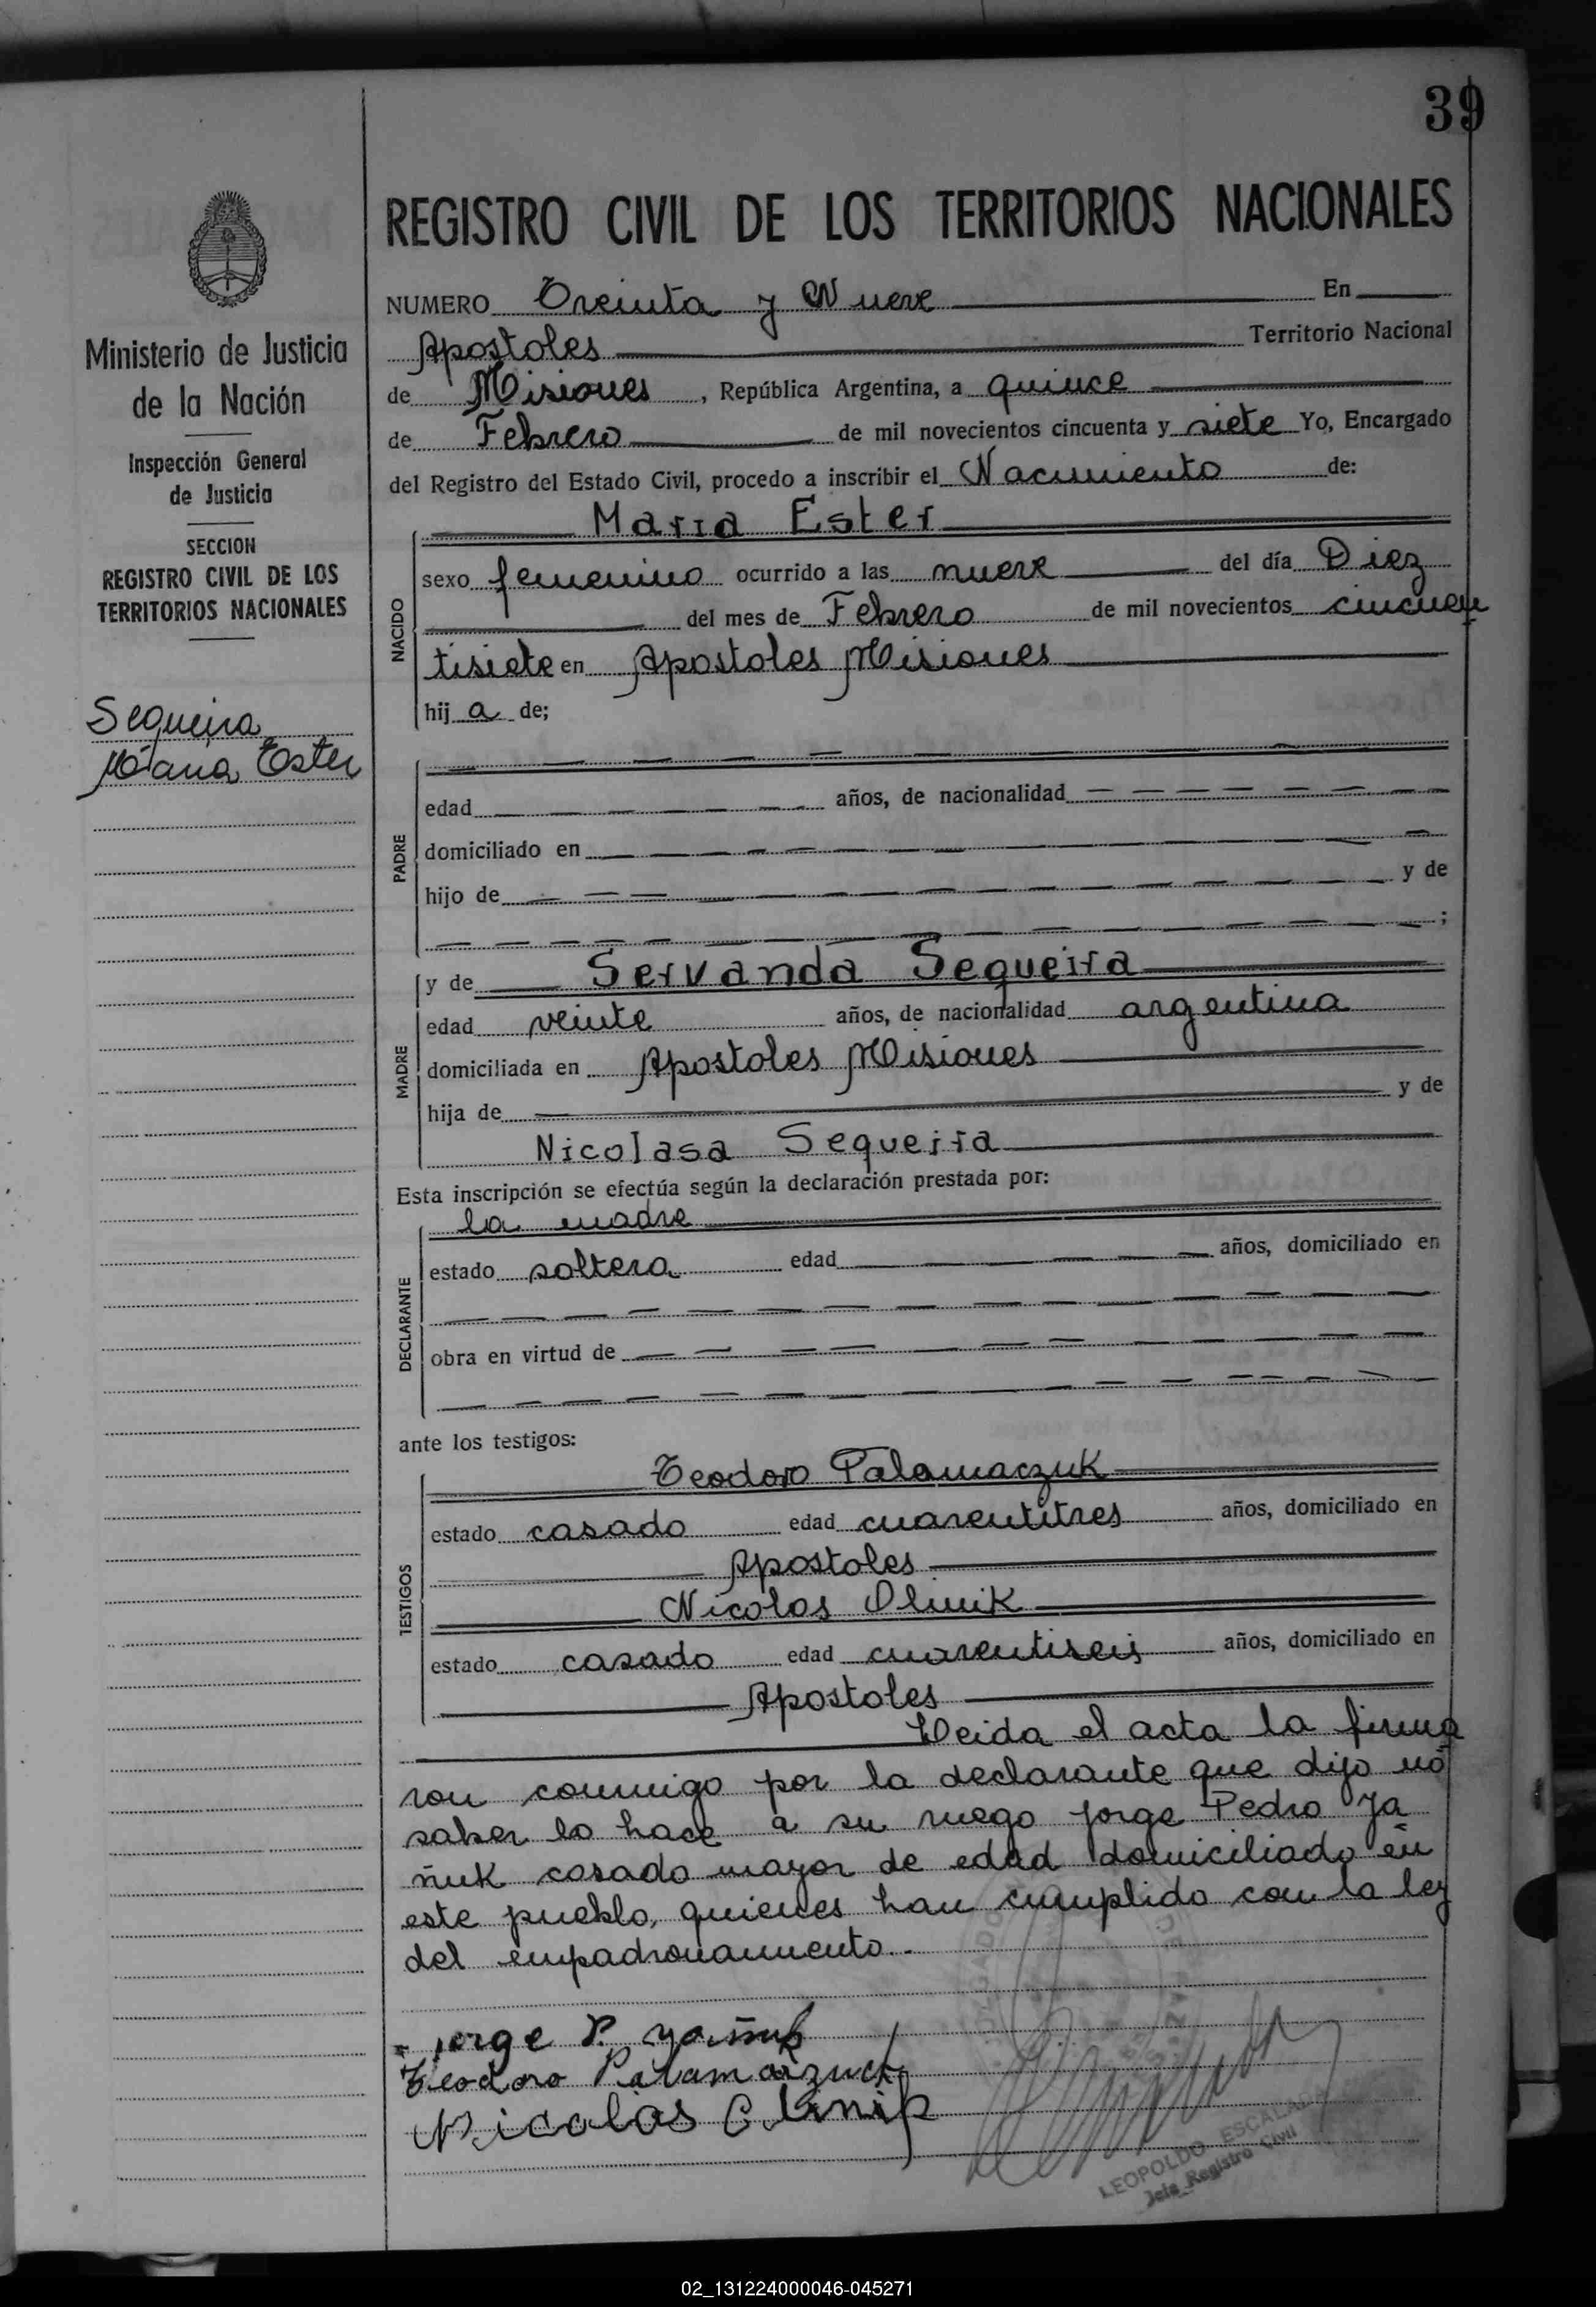 39
REGISTRO CIVIL DE LOS TERRITORIOS NACIONALES
NUMERO Treinta y Nueve En
Apostoles Territorio Nacional
de Misiones, República Argentina, a quince
de Febrero de mil novecientos cincuenta y siete Yo, Encargado
del Registro del Estado Civil, procedo a inscribir el Nacimiento de:
Ministerio de Justicia
de la Nación
Inspección General
de Justicia
SECCION
REGISTRO CIVIL DE LOS
TERRITORIOS NACIONALES
Sequeira
Maria Ester
NACIDO
Maria Ester
sexo femenino ocurrido a las nueve del día Diez
del mes de Febrero de mil novecientos cincuen
tisiete en Apostoles Misiones
hij a de;
PADRE
edad años, de nacionalidad
domiciliado en
hijo de y de
;
MADRE
y de Servanda Sequeira
edad veinte años, de nacionalidad argentina
domiciliada en Apostoles Misiones
hija de y de
Nicolasa Sequeira
Esta inscripción se efectúa según la declaración prestada por:
DECLARANTE
la madre
estado soltera edad años, domiciliado en
obra en virtud de
ante los testigos:
TESTIGOS
Teodoro Palamaczuk
estado casado edad cuarentitres años, domiciliado en
Apostoles
Nicolas Olinik
estado casado edad cuarentiseis años, domiciliado en
Apostoles
Leida el acta la firma
ron conmigo por la declarante que dijo nó
saber lo hace a su ruego Jorge Pedro Ya
ñuk casado mayor de edad domiciliado en
este pueblo, quienes han cumplido con la ley
del empadronamiento.-
Jorge P. Yañuk
Teodoro Palamarzuck
Nicolas Olinik
LEOPOLDO ESCALADA
Jefe Registro Civil
02_131224000046-045271